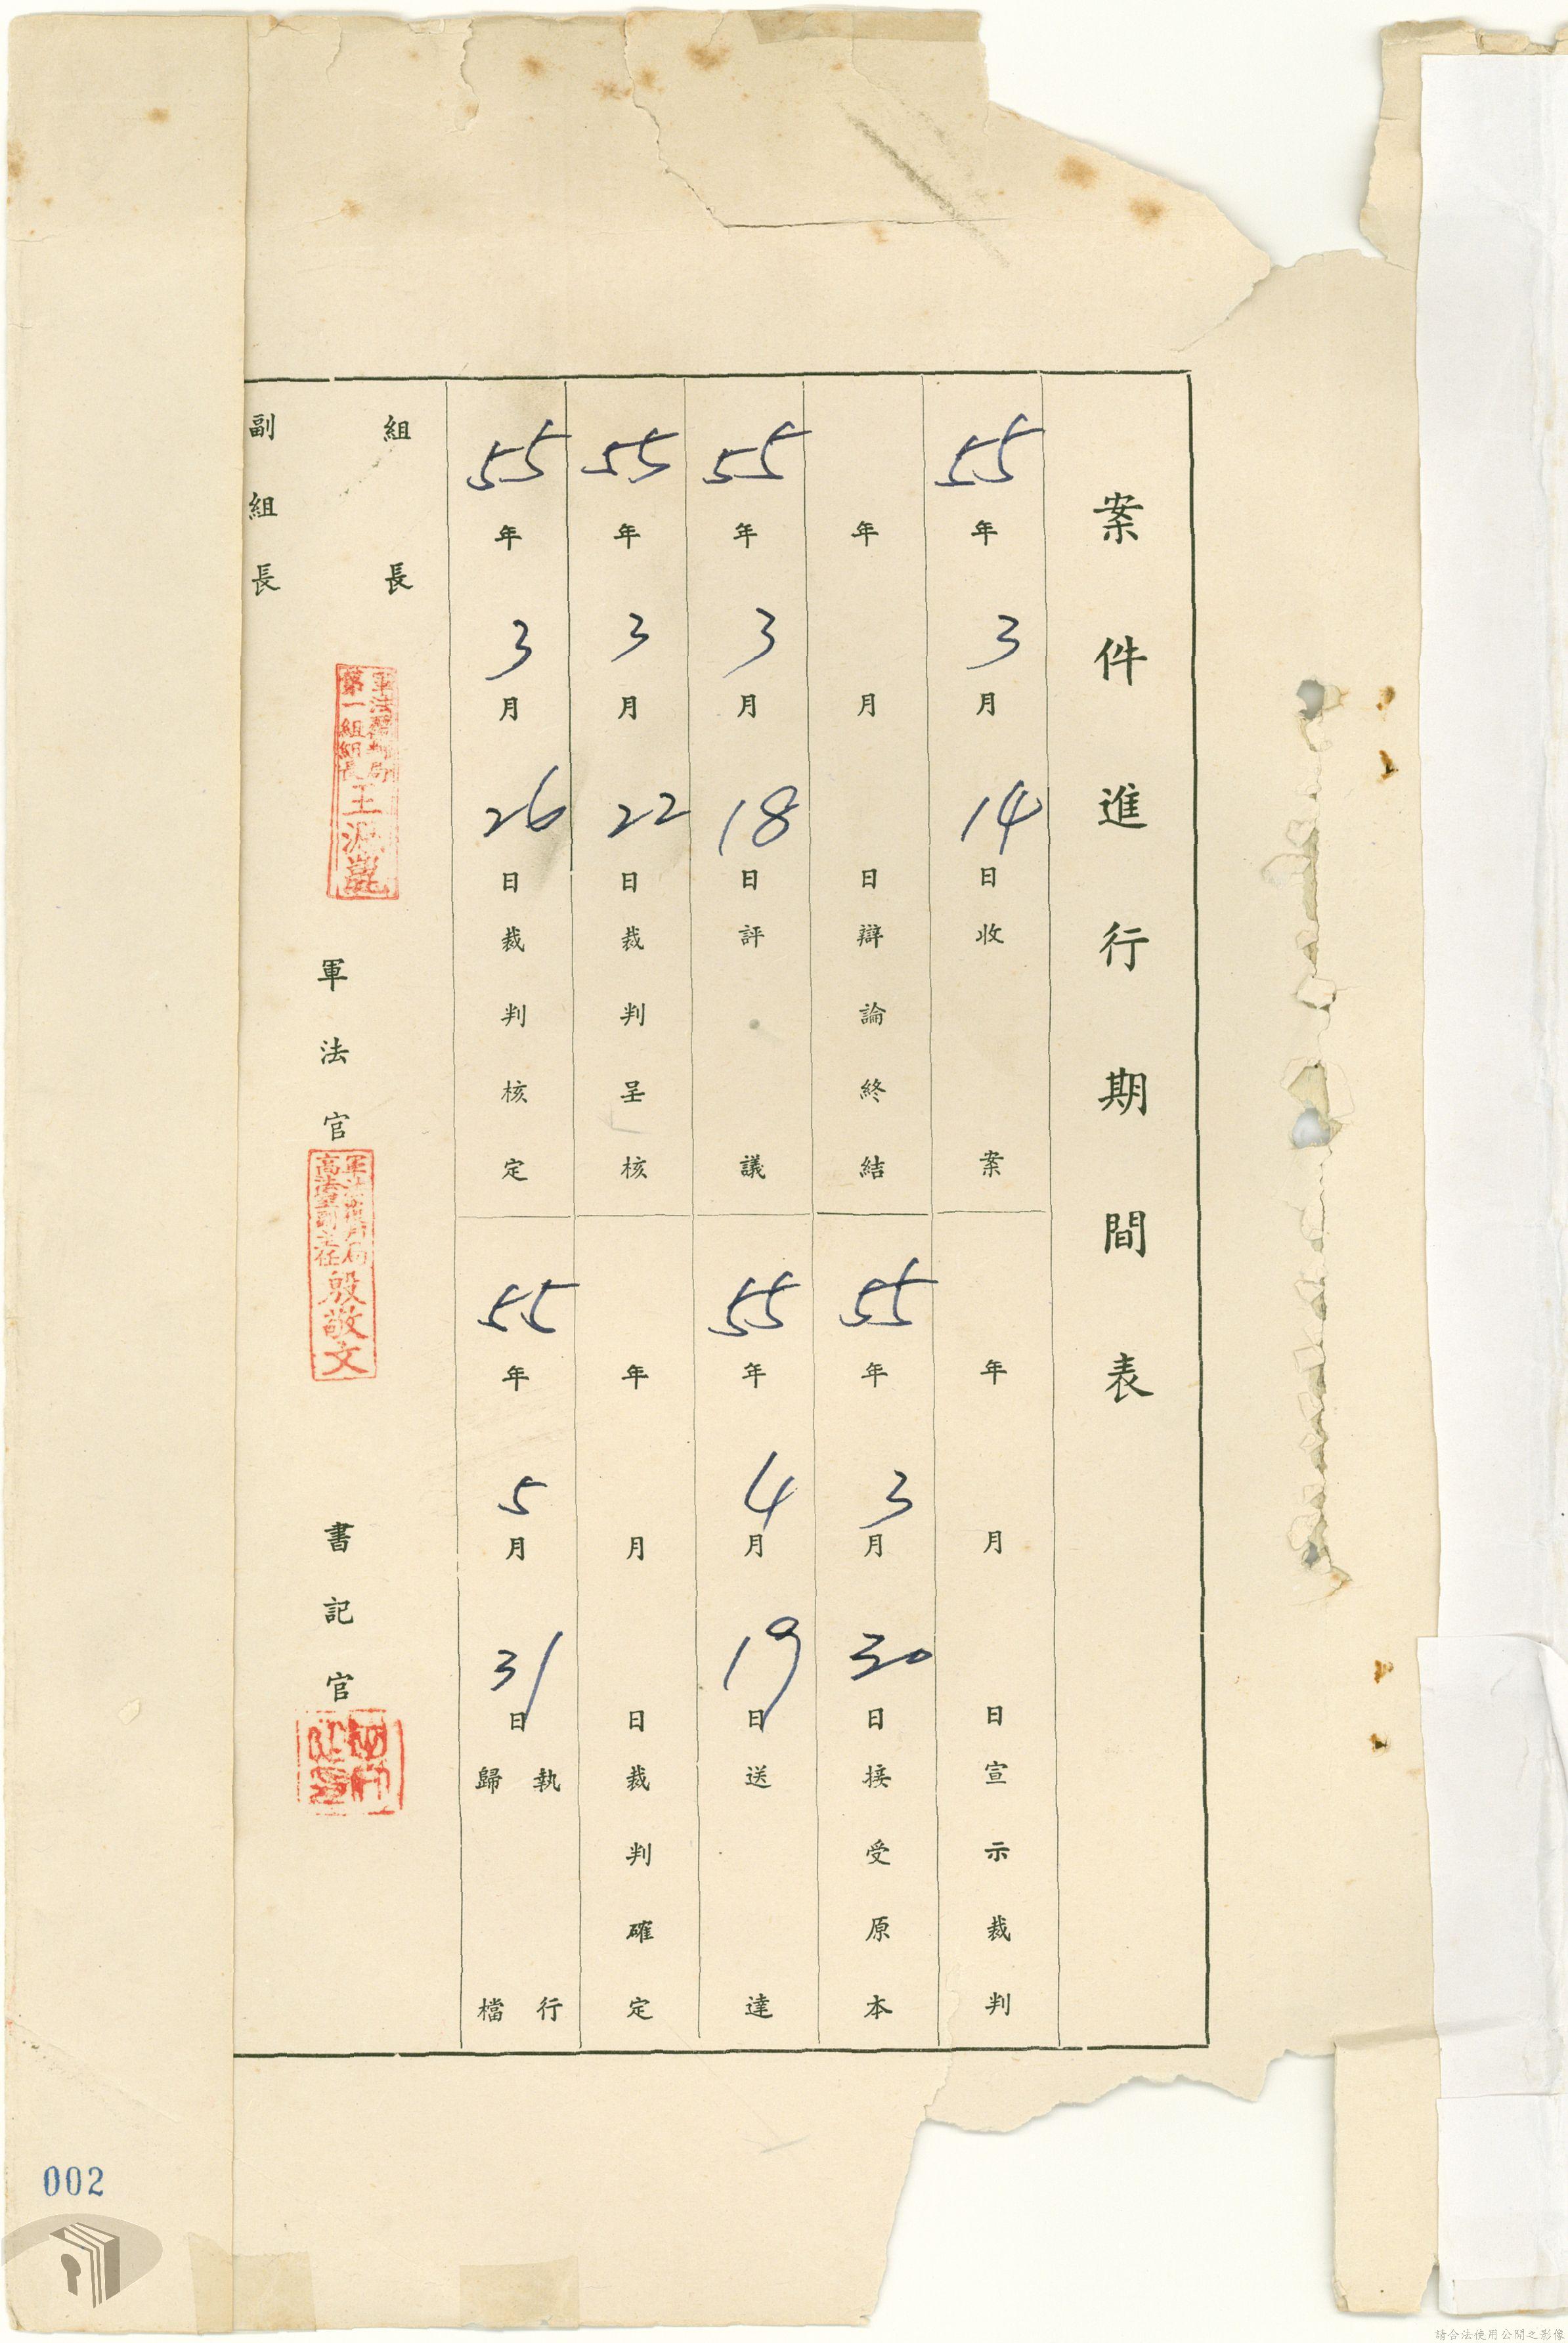 案件進行期間表
55年3月14日收案
年月日宣示裁判
年月日辯論終結
55年3月30日接受原本
55年3月18日評議
55年4月19日送達
55年3月22日裁判呈核
年月日裁判確定
55年3月26日裁判核定
55年5月31日執行歸檔
組長
軍法覆判局
第一組組長
王
軍法官
軍法覆判局
殷敬文
書記官
副組長
002
請合法使用公開之影像